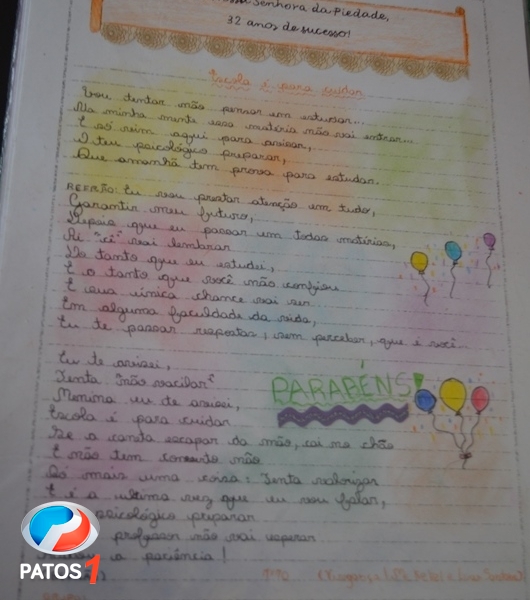 Nossa Senhora da Piedade,
32 anos de sucesso!
Escola é para cuidar
Vou tentar não pensar em estudar...
Na minha mente essa matéria não vai entrar...
E só vim aqui para avisar,
O teu psicológico preparar,
Que amanhã tem prova para estudar.
REFRÃO: Eu vou prestar atenção em tudo,
Garantir meu futuro,
Depois que eu passar em todas matérias,
Ai "cê" vai lembrar
Do tanto que eu estudei,
E o tanto que você não confiou
E sua única chance vai ser
Em alguma faculdade da vida,
Eu te passar respostas, sem perceber, que é você
Eu te avisei,
Tenta "não vacilar"
Menima eu te avisei,
Escola é para cuidar
Se a caneta escapar da mão, cai no chão
E não tem conserto não
Só mais uma coisa: Tenta valorizar
E é a ultima vez que eu vou falar,
psicológico preparar
professor não vai esperar
a paciência!
PARABÉNS!
PATOS 1